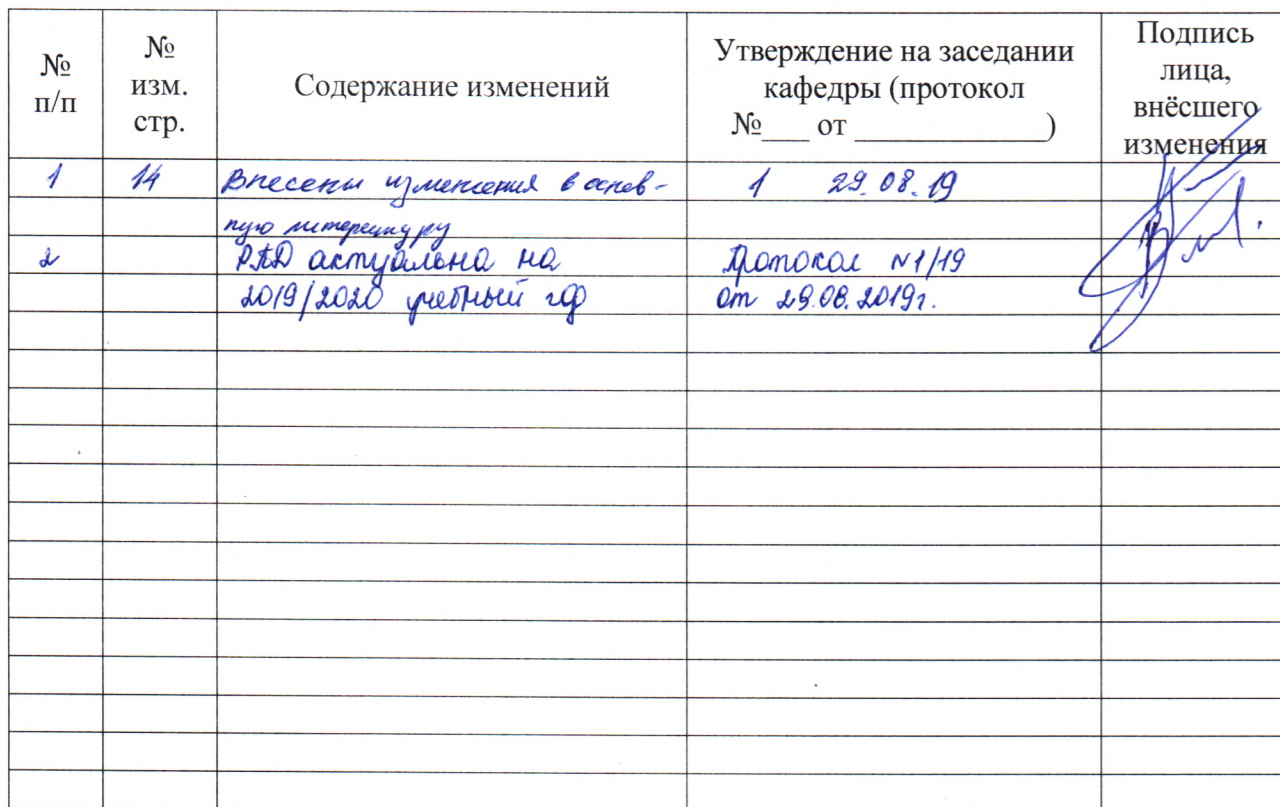 № п/п
№ изм. стр.
Содержание изменений
Утверждение на заседании кафедры (протокол №___ от ______________)
Подпись лица, внёсшего изменения
1 14 Внесены изменения в основ- 1 29.08.19
ную литературу
2 РПД актуальна на Протокол №1/19
2019/2020 учебный год от 29.08.2019г.